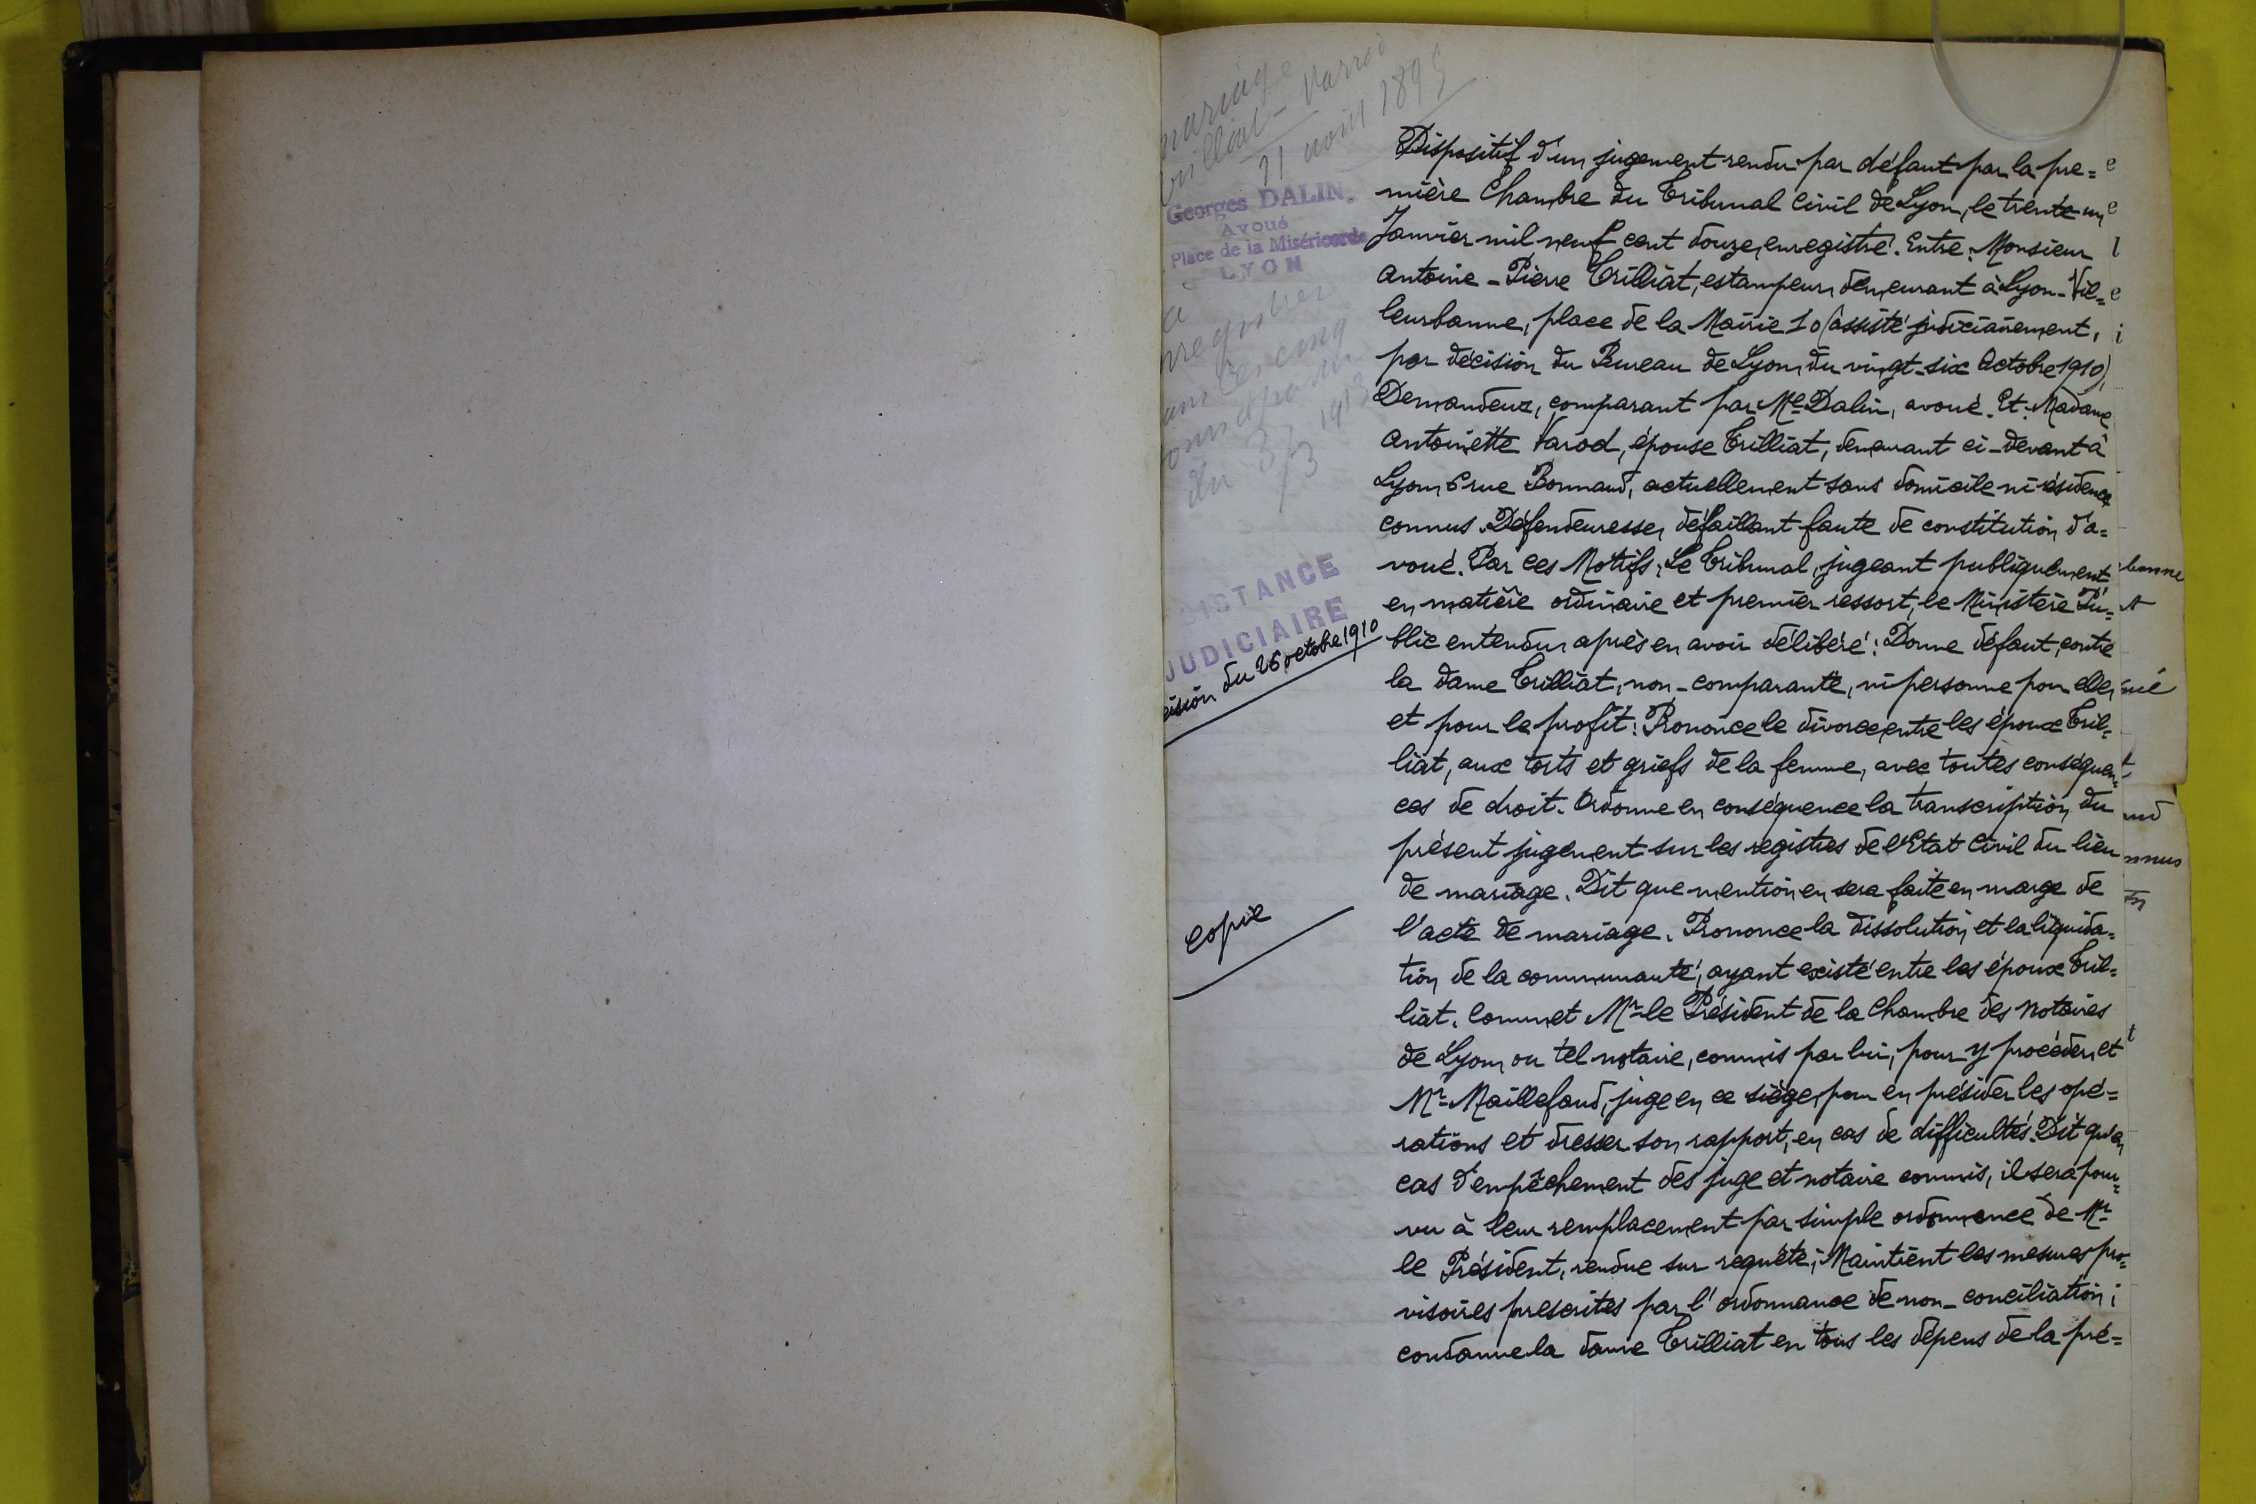 mariage
Varrod
21 août 1895
Georges DALIN
Avoué
Place de la Miséricorde
LYON
à
du 3/3 1913
ISTANCE
JUDICIAIRE
ision du 26 octobre 1910
Copie
Dispositif d'un jugement rendu par défaut par la pre=
mière Chambre du Tribunal Civil de Lyon, le trente-un
Janvier mil neuf cent douze, enregistré. Entre: Monsieur
Antoine-Pierre Trilliat, estampeur, demeurant à Lyon-Vil=
leurbanne, place de la Mairie 10 (assisté judiciairement,
par décision du Bureau de Lyon, du vingt-six Octobre 1910),
Demandeur, comparant par Me Dalin, avoué. Et: Madame
Antoinette Varod, épouse Trilliat, demeurant ci-devant à
Lyon, 6 rue Bonnand, actuellement sans domicile ni résidence
connus. Défenderesse, défaillant faute de constitution d'a=
voué. Par ces Motifs: Le Tribunal, jugeant publiquement
en matière ordinaire et premier ressort, le Ministère Pu=
blic entendu, après en avoir délibéré: Donne défaut, contre
la dame Trilliat, non-comparante, ni personne pour elle,
et pour le profit: Prononce le divorce, entre les époux Tril=
liat, aux torts et griefs de la femme, avec toutes conséquen=
ces de droit. Ordonne en conséquence la transcription du
présent jugement sur les registres de l'Etat Civil du lieu
de mariage. Dit que mention en sera faite en marge de
l'acte de mariage. Prononce la dissolution et la liquida=
tion de la communauté, ayant existé entre les époux Tril=
liat. Commet Mr le Président de la Chambre des Notaires
de Lyon, ou tel notaire, commis par lui, pour y procéder, et
Mr Maillefaud, juge en ce siège, pour en présider les opé=
rations et dresser son rapport, en cas de difficultés. Dit qu'en
cas d'empêchement des juge et notaire commis, il sera pour=
vu à leur remplacement par simple ordonnance de Mr
le Président, rendue sur requête; Maintient les mesures pro=
visoires prescrites par l'ordonnance de non-conciliation;
condamne la dame Trilliat en tous les dépens de la pré=